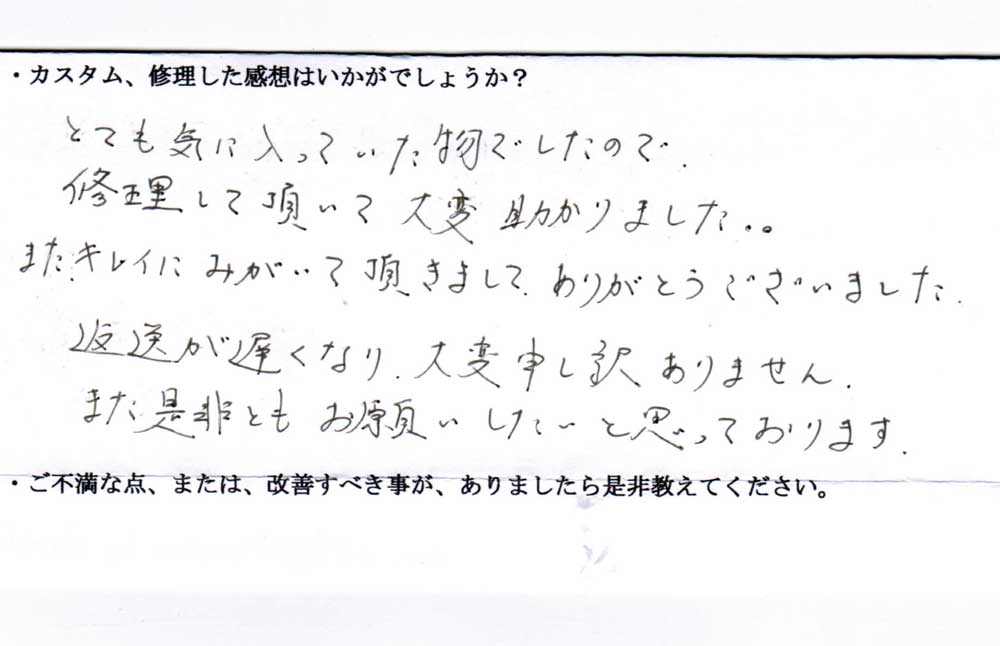 ・カスタム、修理した感想はいかがでしょうか？
とても気に入っていた物でしたので、
修理して頂いて大変助かりました。。
また、キレイにみがいて頂きまして、ありがとうございました。
返送が遅くなり、大変申し訳ありません。
また是非ともお願いしたいと思っております。
・ご不満な点、または、改善すべき事が、ありましたら是非教えてください。